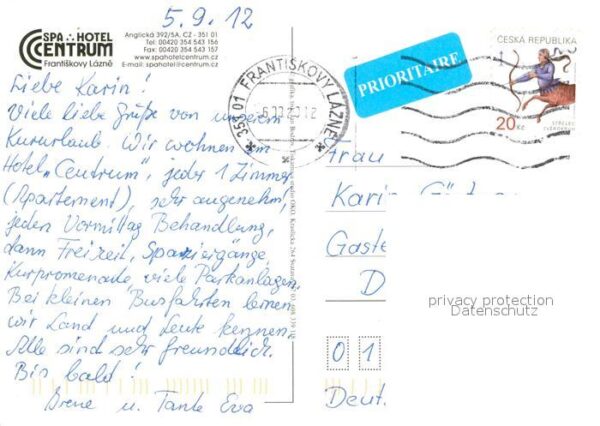 5.9.12
SPA HOTEL
CENTRUM
Františkovy Lázně
Anglická 392/5A, CZ - 351 01
Tel: 00420 354 543 156
Fax: 00420 354 543 157
www.spahotelccentrum.cz
E-mail: spahotel@ccentrum.cz
Liebe Karin!
Viele liebe Grüße von unserem
Kururlaub. Wir wohnen im
Hotel „Centrum", jeder 1 Zimmer
(Apartement), sehr angenehm,
jeden Vormittag Behandlung,
dann Freizeit, Spaziergänge,
Kurpromenade, viele Parkanlagen.
Bei kleinen Busfahrten lernen
wir Land und Leute kennen.
Alle sind sehr freundlich.
Bis bald!
Irene u. Tante Eva
351 01 FRANTIŠKOVY LÁZNĚ
PRIORITAIRE
ČESKÁ REPUBLIKA
20 Kč
Frau
Karin
Gaste
D
0 1
Deut
privacy protection
Datenschutz